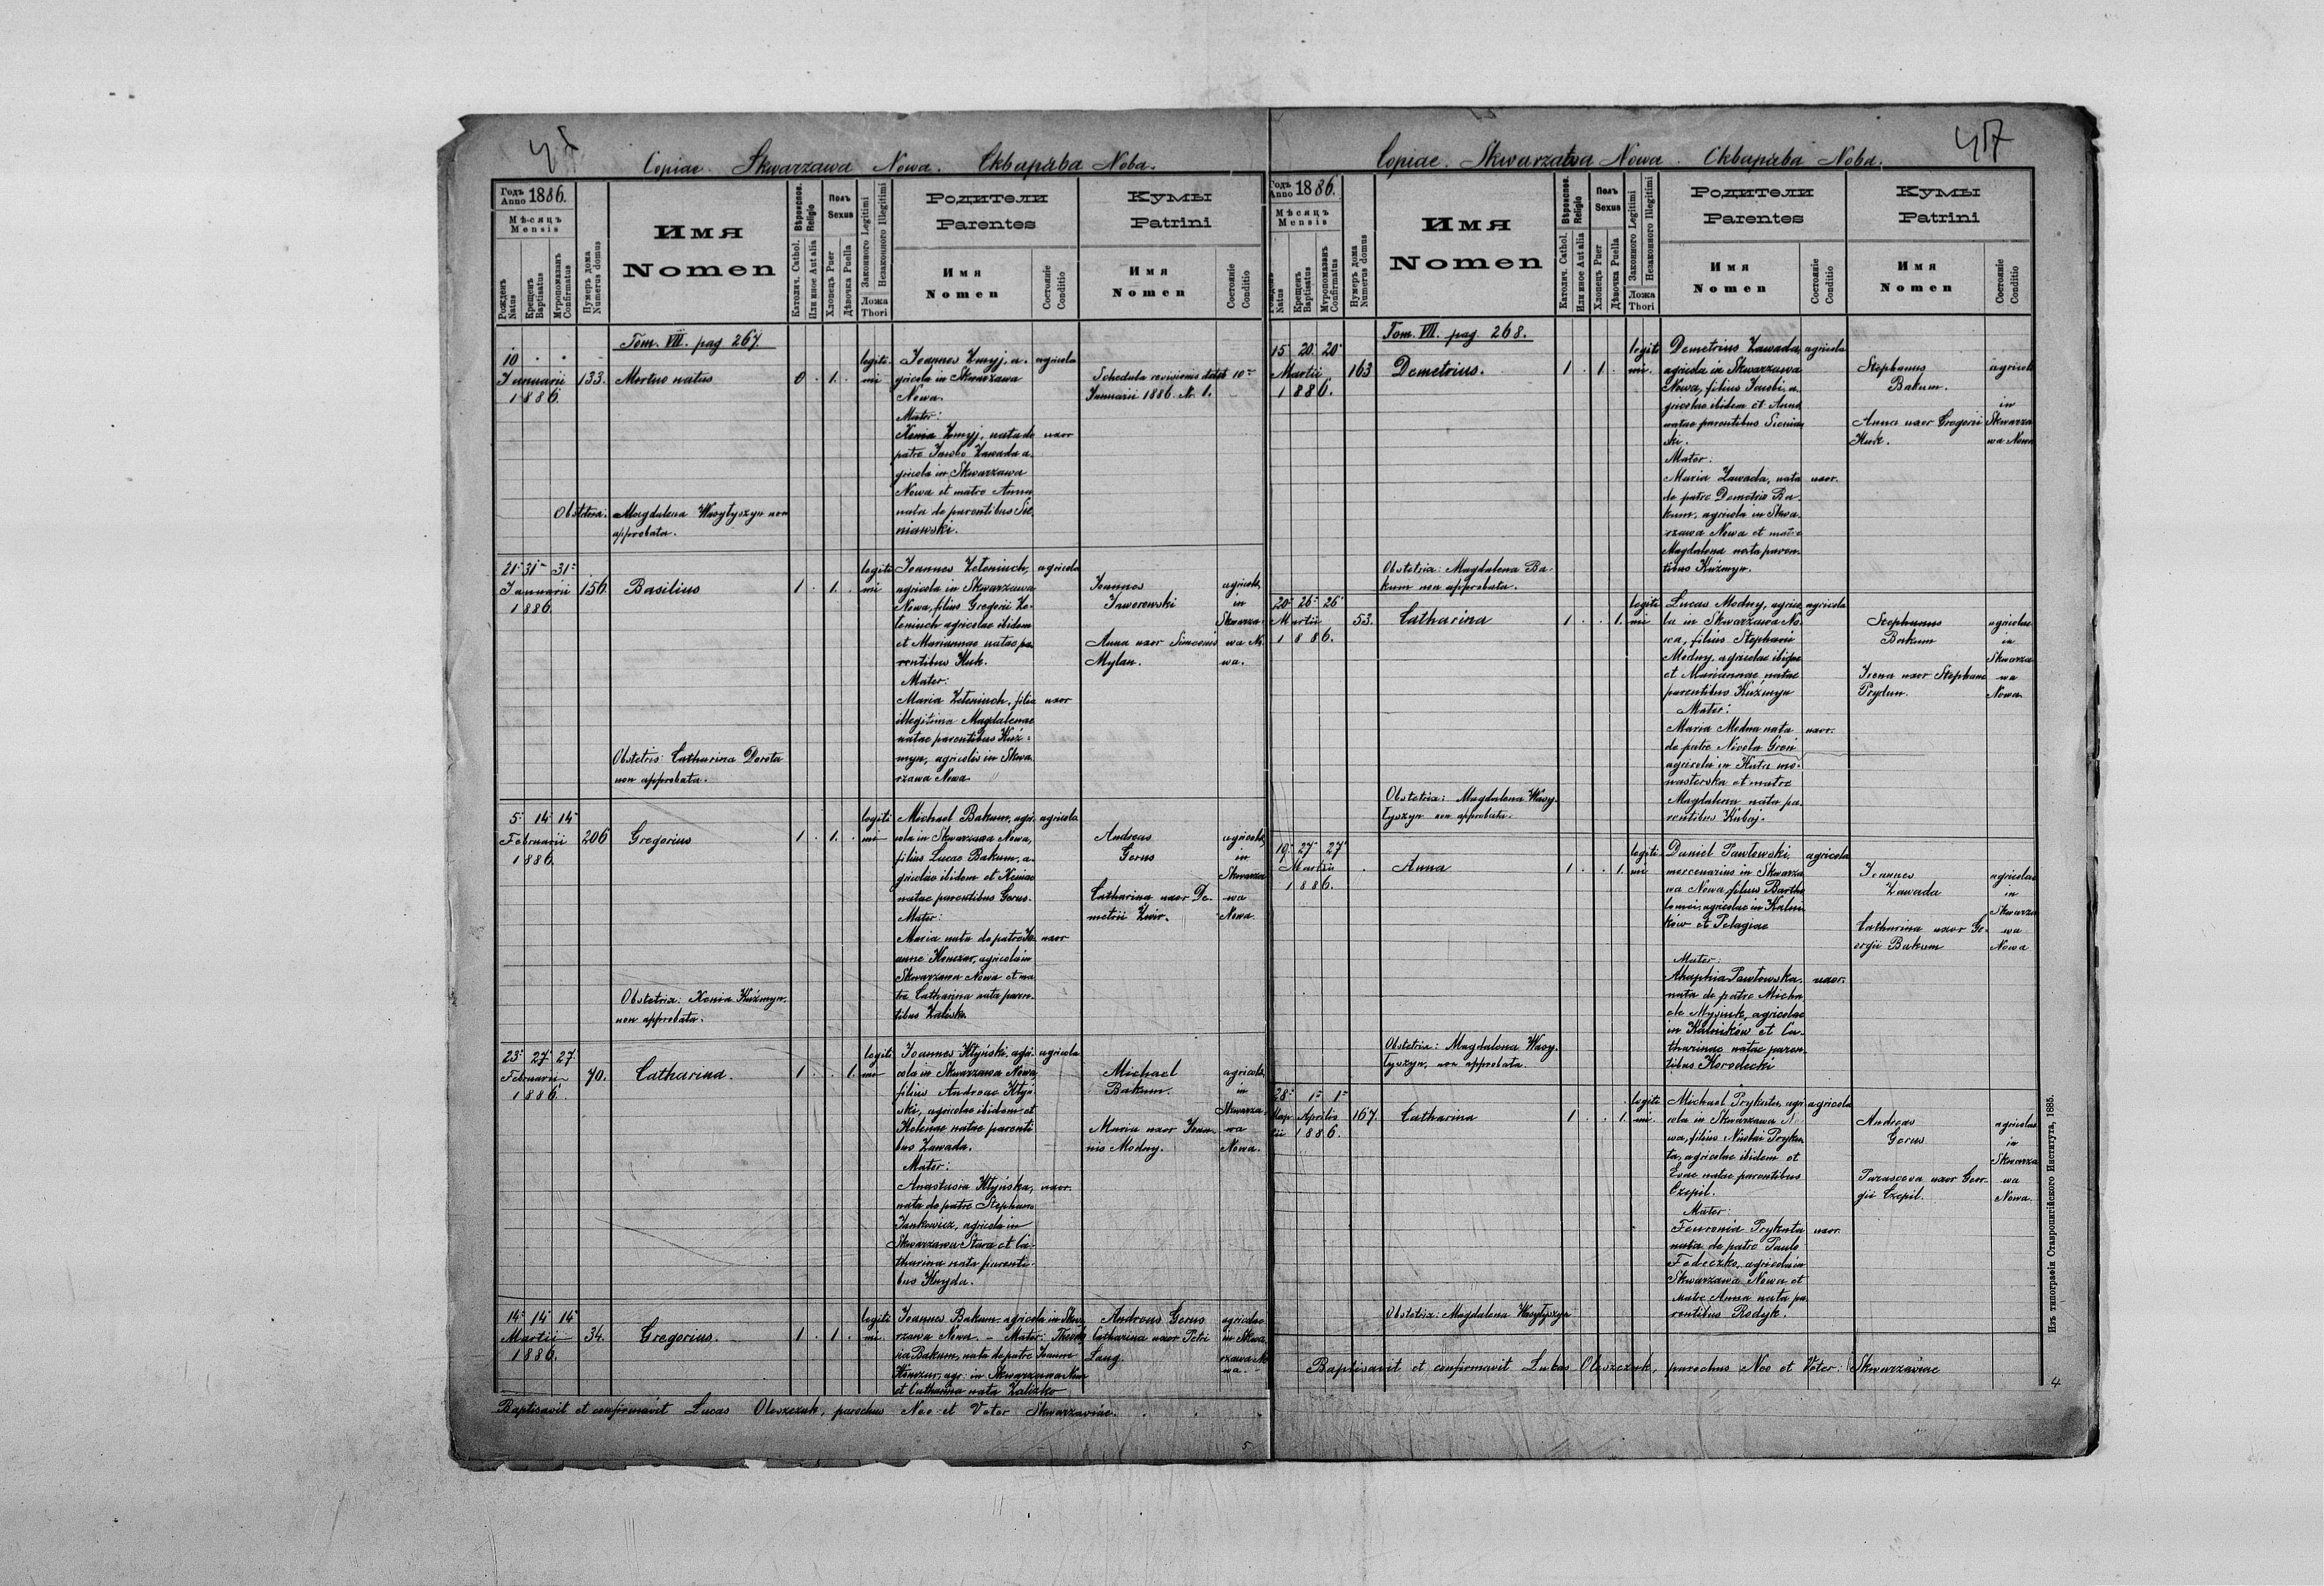 Copiae. Skwarzawa Nowa. Скварѣва Нова.
Годъ Anno 1886.
Мѣсяцъ
Mensis
Рожденъ Natus
Крещенъ Baptisatus
Мѵропомазанъ Confirmatus
Нумеръ дома Numerus domus
Имя
Nomen
Вѣроиспов. Religio
Католич. Cathol.
Или иное Aut alia
Полъ
Sexus
Хлопецъ Puer
Дѣвочка Puella
Законного Legitimi
Незаконного Illegitimi
Ложа
Thori
Родители
Parentes
Имя
Nomen
Состояніе
Conditio
Кумы
Patrini
Имя
Nomen
Состояніе
Conditio
Tom. VII. pag 267.
10 . .
Januarii
1886.
133.
Mortuo natus
0 . 1. .
legiti-
mi
Joannes Zmyj, a-
gricola in Skwarzawa
Nowa.
Mater:
Xenia Zmyj, nata de
patre Jacobo Zawada a-
gricola in Skwarzawa
Nowa et matre Anna
nata de parentibus Sie-
niawski.
agricola
uxor
Schedula revisionis 10
Januarii 1886 N. 1.
Obstetrix. Magdalena Wasyłyszyn non
approbata.
21 31 31
Januarii
1886
156
Basilius
1 . 1. .
legiti
mi
Joannes Zeteniuch,
agricola in Skwarzawa
Nowa, filius Gregorii Ze-
teniuch agricolae ibidem
et Mariannae natae pa-
rentibus Huk.
Mater:
Maria Zeteniuch, filia
illegitima Magdalenae
natae parentibus Kuź-
myn, agricolis in Skwa
rzawa Nowa.
agricola
uxor
Joannes
Jaworowski
Anna uxor Simeonis
Mylan.
agricolae
in
Skwarza-
wa No
wa.
Obstetrix: Catharina Dorota
non approbata.
5 14 14
Februarii
1886.
206
Gregorius
1 . 1. .
legiti
mi
Michael Bakum, agri-
cola in Skwarzawa Nowa,
filius Lucae Bakum, a-
gricolae ibidem et Xeniae
natae parentibus Gerus.
Mater:
Maria nata de patre Jo-
anne Honczar, agricola in
Skwarzawa Nowa et ma
tre Catharina nata paren-
tibus
agricola
uxor
Andreas
Gerus
Catharina uxor De-
metrii Zwir.
agricolae
in
Skwarza
wa
Nowa
Obstetrix: Xenia Kuźmyn,
non approbata.
23 27 27
Februarii
1886.
70.
Catharina.
1 . . 1.
legiti
mi
Joannes Kłyński, agri-
cola in Skwarzawa Nowa,
filius Andreae Kłyń
ski, agricolae ibidem et
Helenae natae parenti
bus Zawada.
Mater:
Anastasia Kłyńska,
nata de patre Stephano
Jankowicz, agricola in
Skwarzawa Stara et Ca-
tharina nata parenti-
bus Hnyda.
agricola
uxor.
Michael
Bakum.
Maria uxor Joan-
nis Modny.
agricolae
in
Skwarza-
wa
Nowa.
14 14 14
Martii
1886.
34.
Gregorius.
1 . 1 .
legiti
mi.
Joannes Bakum agricola in Skwa-
rzawa Nowa. – Mater:
Bakum, nata de patre Joanne
Honczar, agr. in Skwarzawa Nowa
et Catharina nata Zalizko
Andreas Gerus
Catharina uxor Petri
Lang.
agricolae
in Skwa-
rzawa No
wa.
Baptisavit et confirmavit Lucas Oleszczuk, parochus Neo et Veter Skwarzaviae.
5
417
Copiae. Skwarzawa Nowa. Скварѣва Нова.
Годъ Anno 1886.
Мѣсяцъ
Mensis
Рожденъ Natus
Крещенъ Baptisatus
Мѵропомазанъ Confirmatus
Нумеръ дома Numerus domus
Имя
Nomen
Вѣроиспов. Religio
Католич. Cathol.
Или иное Aut alia
Полъ
Sexus
Хлопецъ Puer
Дѣвочка Puella
Законного Legitimi
Незаконного Illegitimi
Ложа
Thori
Родители
Parentes
Имя
Nomen
Состояніе
Conditio
Кумы
Patrini
Имя
Nomen
Состояніе
Conditio
Tom. VII. pag 268.
15 20 20
Martii
1886.
163
Demetrius.
1 . 1 .
legiti
mi.
Demetrius Zawada,
agricola in Skwarzawa
Nowa, filius Jacobi, a-
gricolae ibidem et Anna
natae parentibus Sieniaw
ski.
Mater:
Maria Zawada, nata
de patre Demetrio Ba-
kum, agricola in Skwa-
rzawa Nowa et matre
Magdalena nata paren-
tibus Kuźmyn.
agricola
uxor.
Stephanus
Bakum.
Anna uxor Gregorii
Huk.
agricolae
in
Skwarza
wa Nowa
Obstetrix: Magdalena Ba-
kum non approbata.
20 26 26
Martii
1886.
53.
Catharina
1 . . 1.
legiti
mi
Lucas Modny, agrico
la in Skwarzawa No
wa, filius Stephani
Modny, agricolae ibidem
et Mariannae natae
parentibus Kuźmyn
Mater:
Maria Modna nata
de patre Nicola Groń
agricola in Huta mo-
nasterska et matre
Magdalena nata pa-
rentibus Kubaj.
agricola
uxor.
Stephanus
Bakum
Irena uxor Stephani
Prydun.
agricolae
in
Skwarza
wa
Nowa.
Obstetrix: Magdalena Wasy-
łyszyn non approbata.
19 27 27
Martii
1886.
.
Anna
1 . . 1.
legiti-
mi
Daniel Pawłowski,
mercenarius in Skwarza
wa Nowa, filius Bartho
lomei, agricolae in Kalni
ków et Pelagiae
Mater:
Ahaphia Pawłowska,
nata de patre Micha
ele agricolae
in Kalników et Ca-
tharinae natae paren-
tibus Horodecki
agricola
uxor.
Joannes
Zawada
Catharina uxor Ge-
orgii Bakum
agricolae
in
Skwarza
wa
Nowa
Obstetrix: Magdalena Wasy-
łyszyn, non approbata.
28 1 1
Mar- Aprilis
tii 1886.
167.
Catharina
1 . . 1.
legiti
mi.
Michael Prykuta, agri
cola in Skwarzawa No
wa, filius Nicolai Pryku
ta, agricolae ibidem et
Evae natae parentibus
Czepil.
Mater:
Feuronia Prykuta
nata de patre Paulo
Fedeczko, agricola in
Skwarzawa Nowa et
matre Anna nata pa-
rentibus Rodyk.
agricola
uxor.
Andreas
Gerus
Parasceva uxor Geor-
gii Czepil.
agricolae
in
Skwarza
wa
Nowa.
Obstetrix: Magdalena Wasyłyszyn
Baptisavit et confirmavit Lukas Oleszczuk, parochus Neo et Veter: Skwarzaviae
4
Изъ типографіи Ставропигійского Института, 1885.